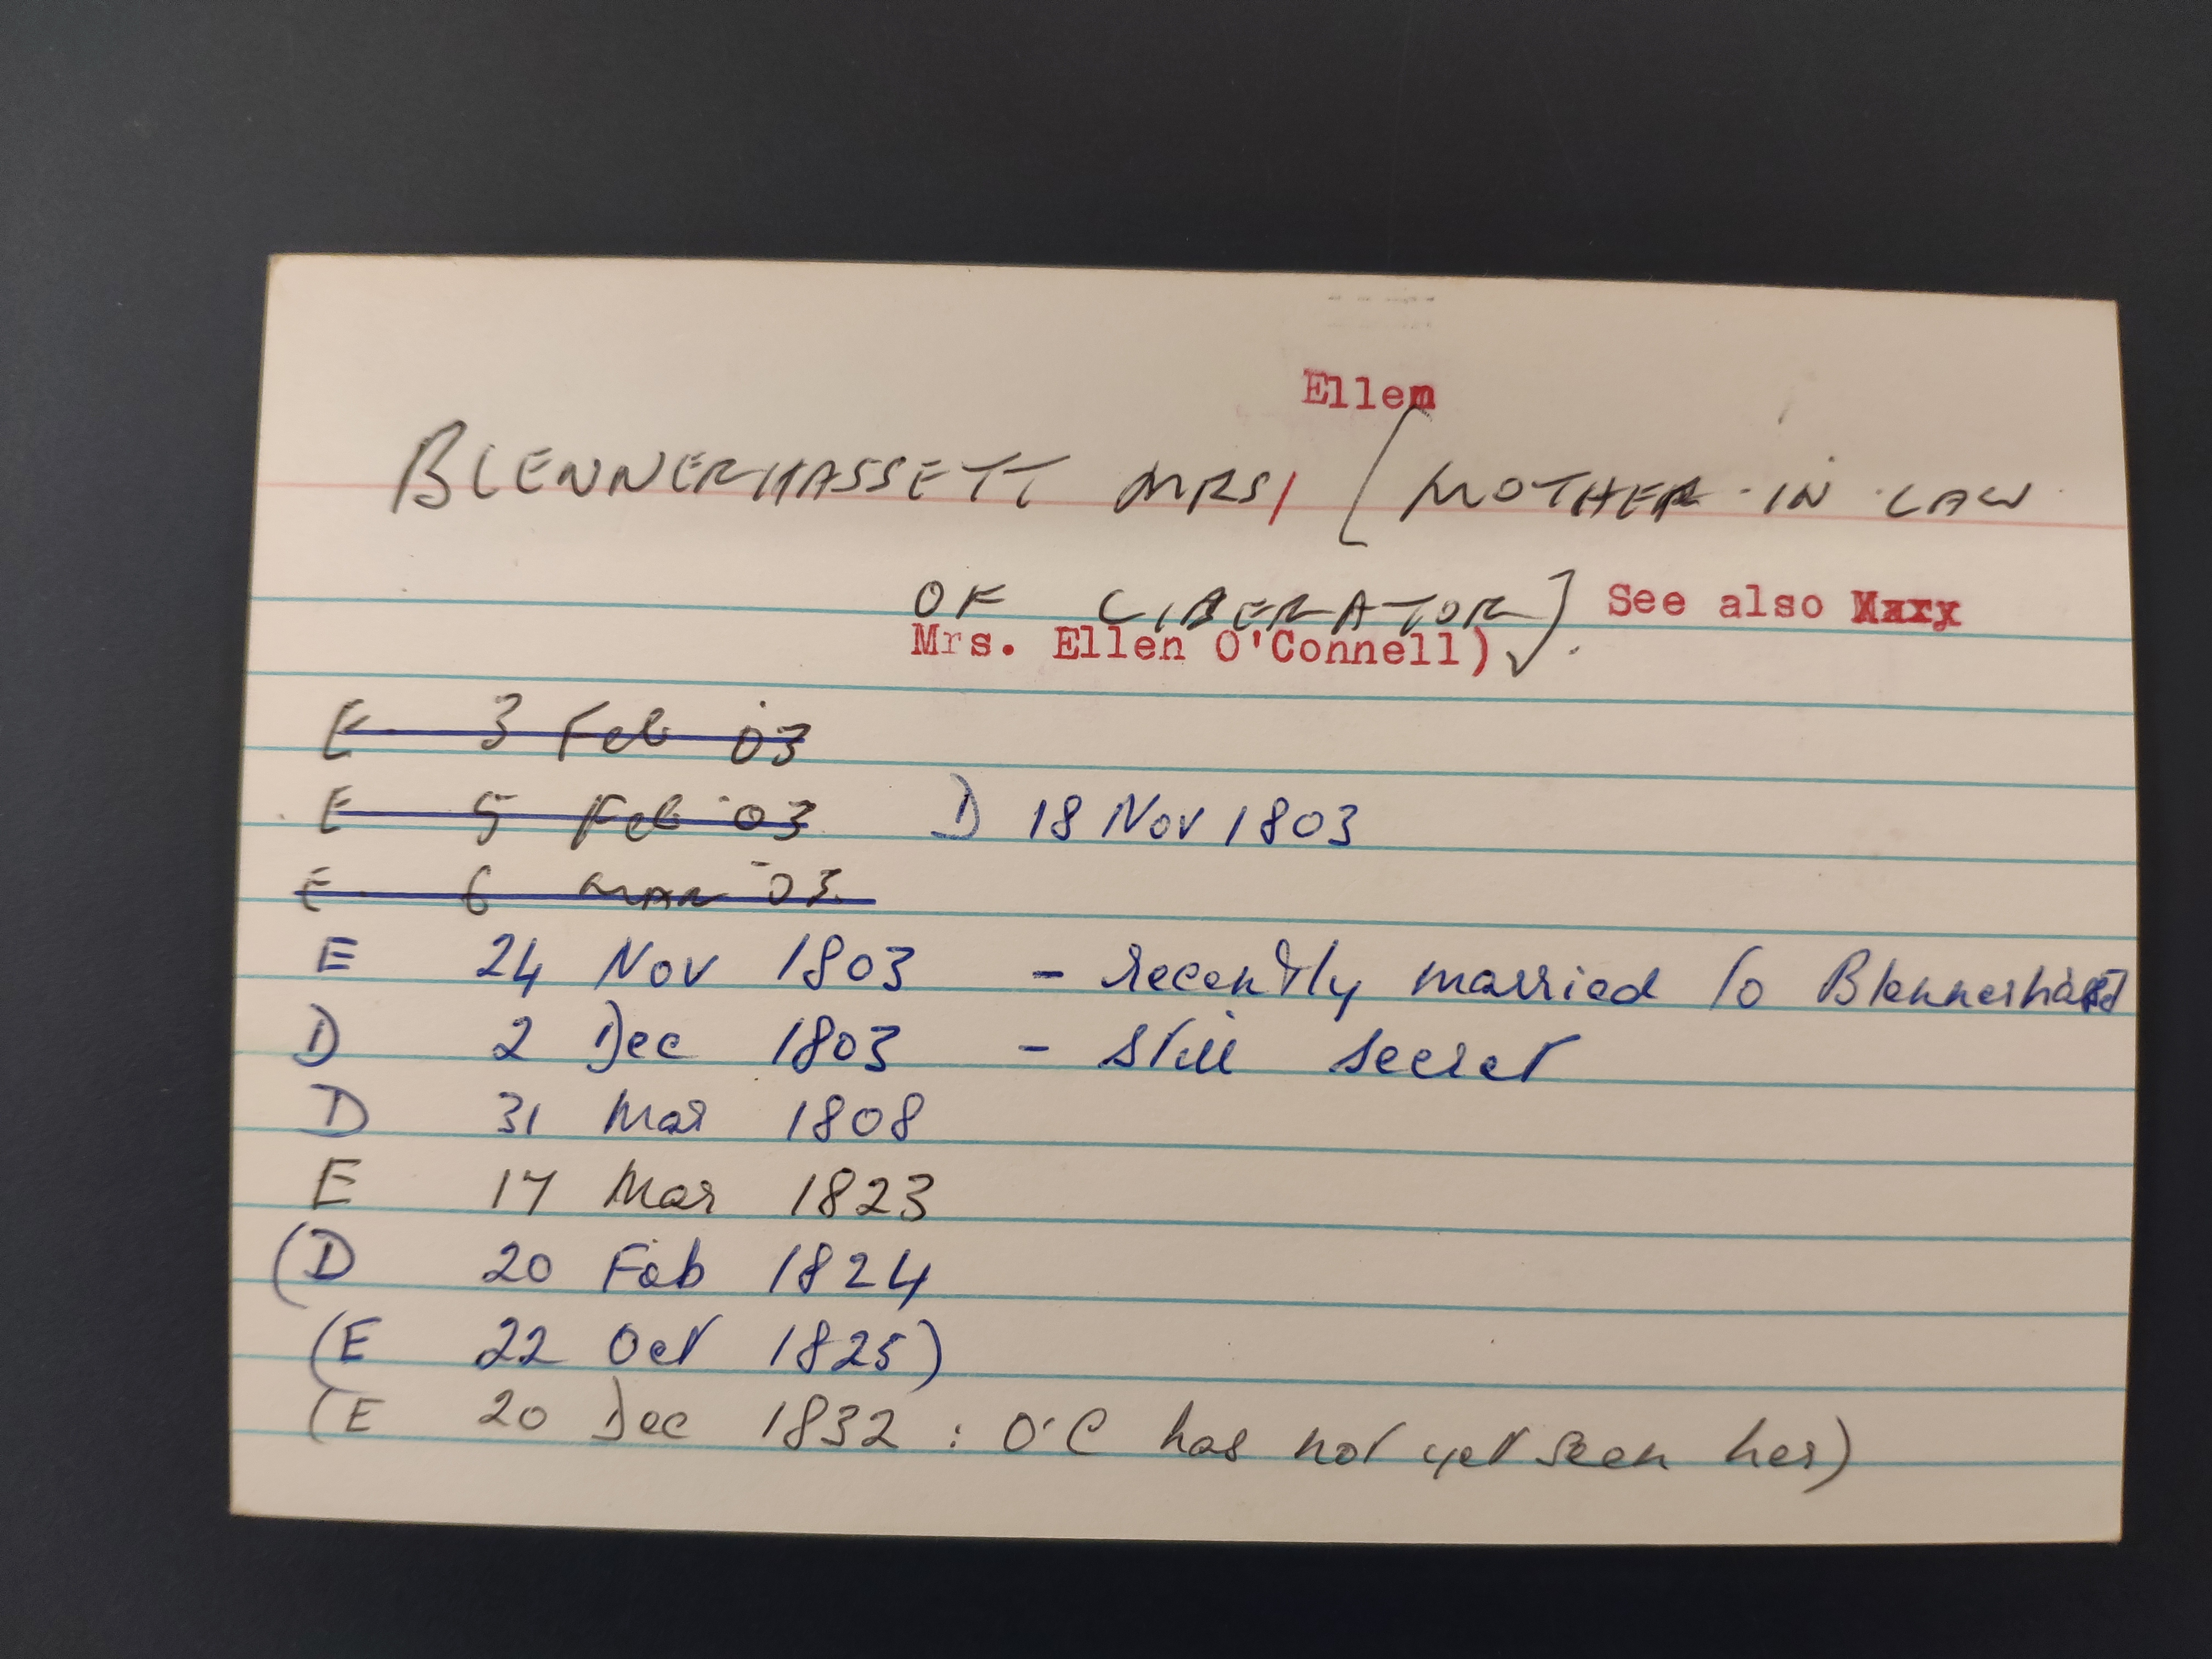 Ellen
BLENNERHASSETT MRS/ [MOTHER-IN-LAW
OF LIBERATOR] See also
Mrs. Ellen O'Connell) ✓.
E 3 Feb '03
E 5 Feb '03 D 18 Nov 1803
E 6 MAR '03.
E 24 Nov 1803 - recently married to Blennerhassett
D 2 Dec 1803 - still secret
D 31 Mar 1808
E 17 Mar 1823
(D 20 Feb 1824
(E 22 Oct 1825)
(E 20 Dec 1832 : O'C has not yet seen her)